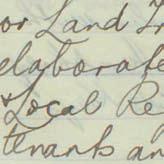 or Land
elaborate
& Local Re
tenants an